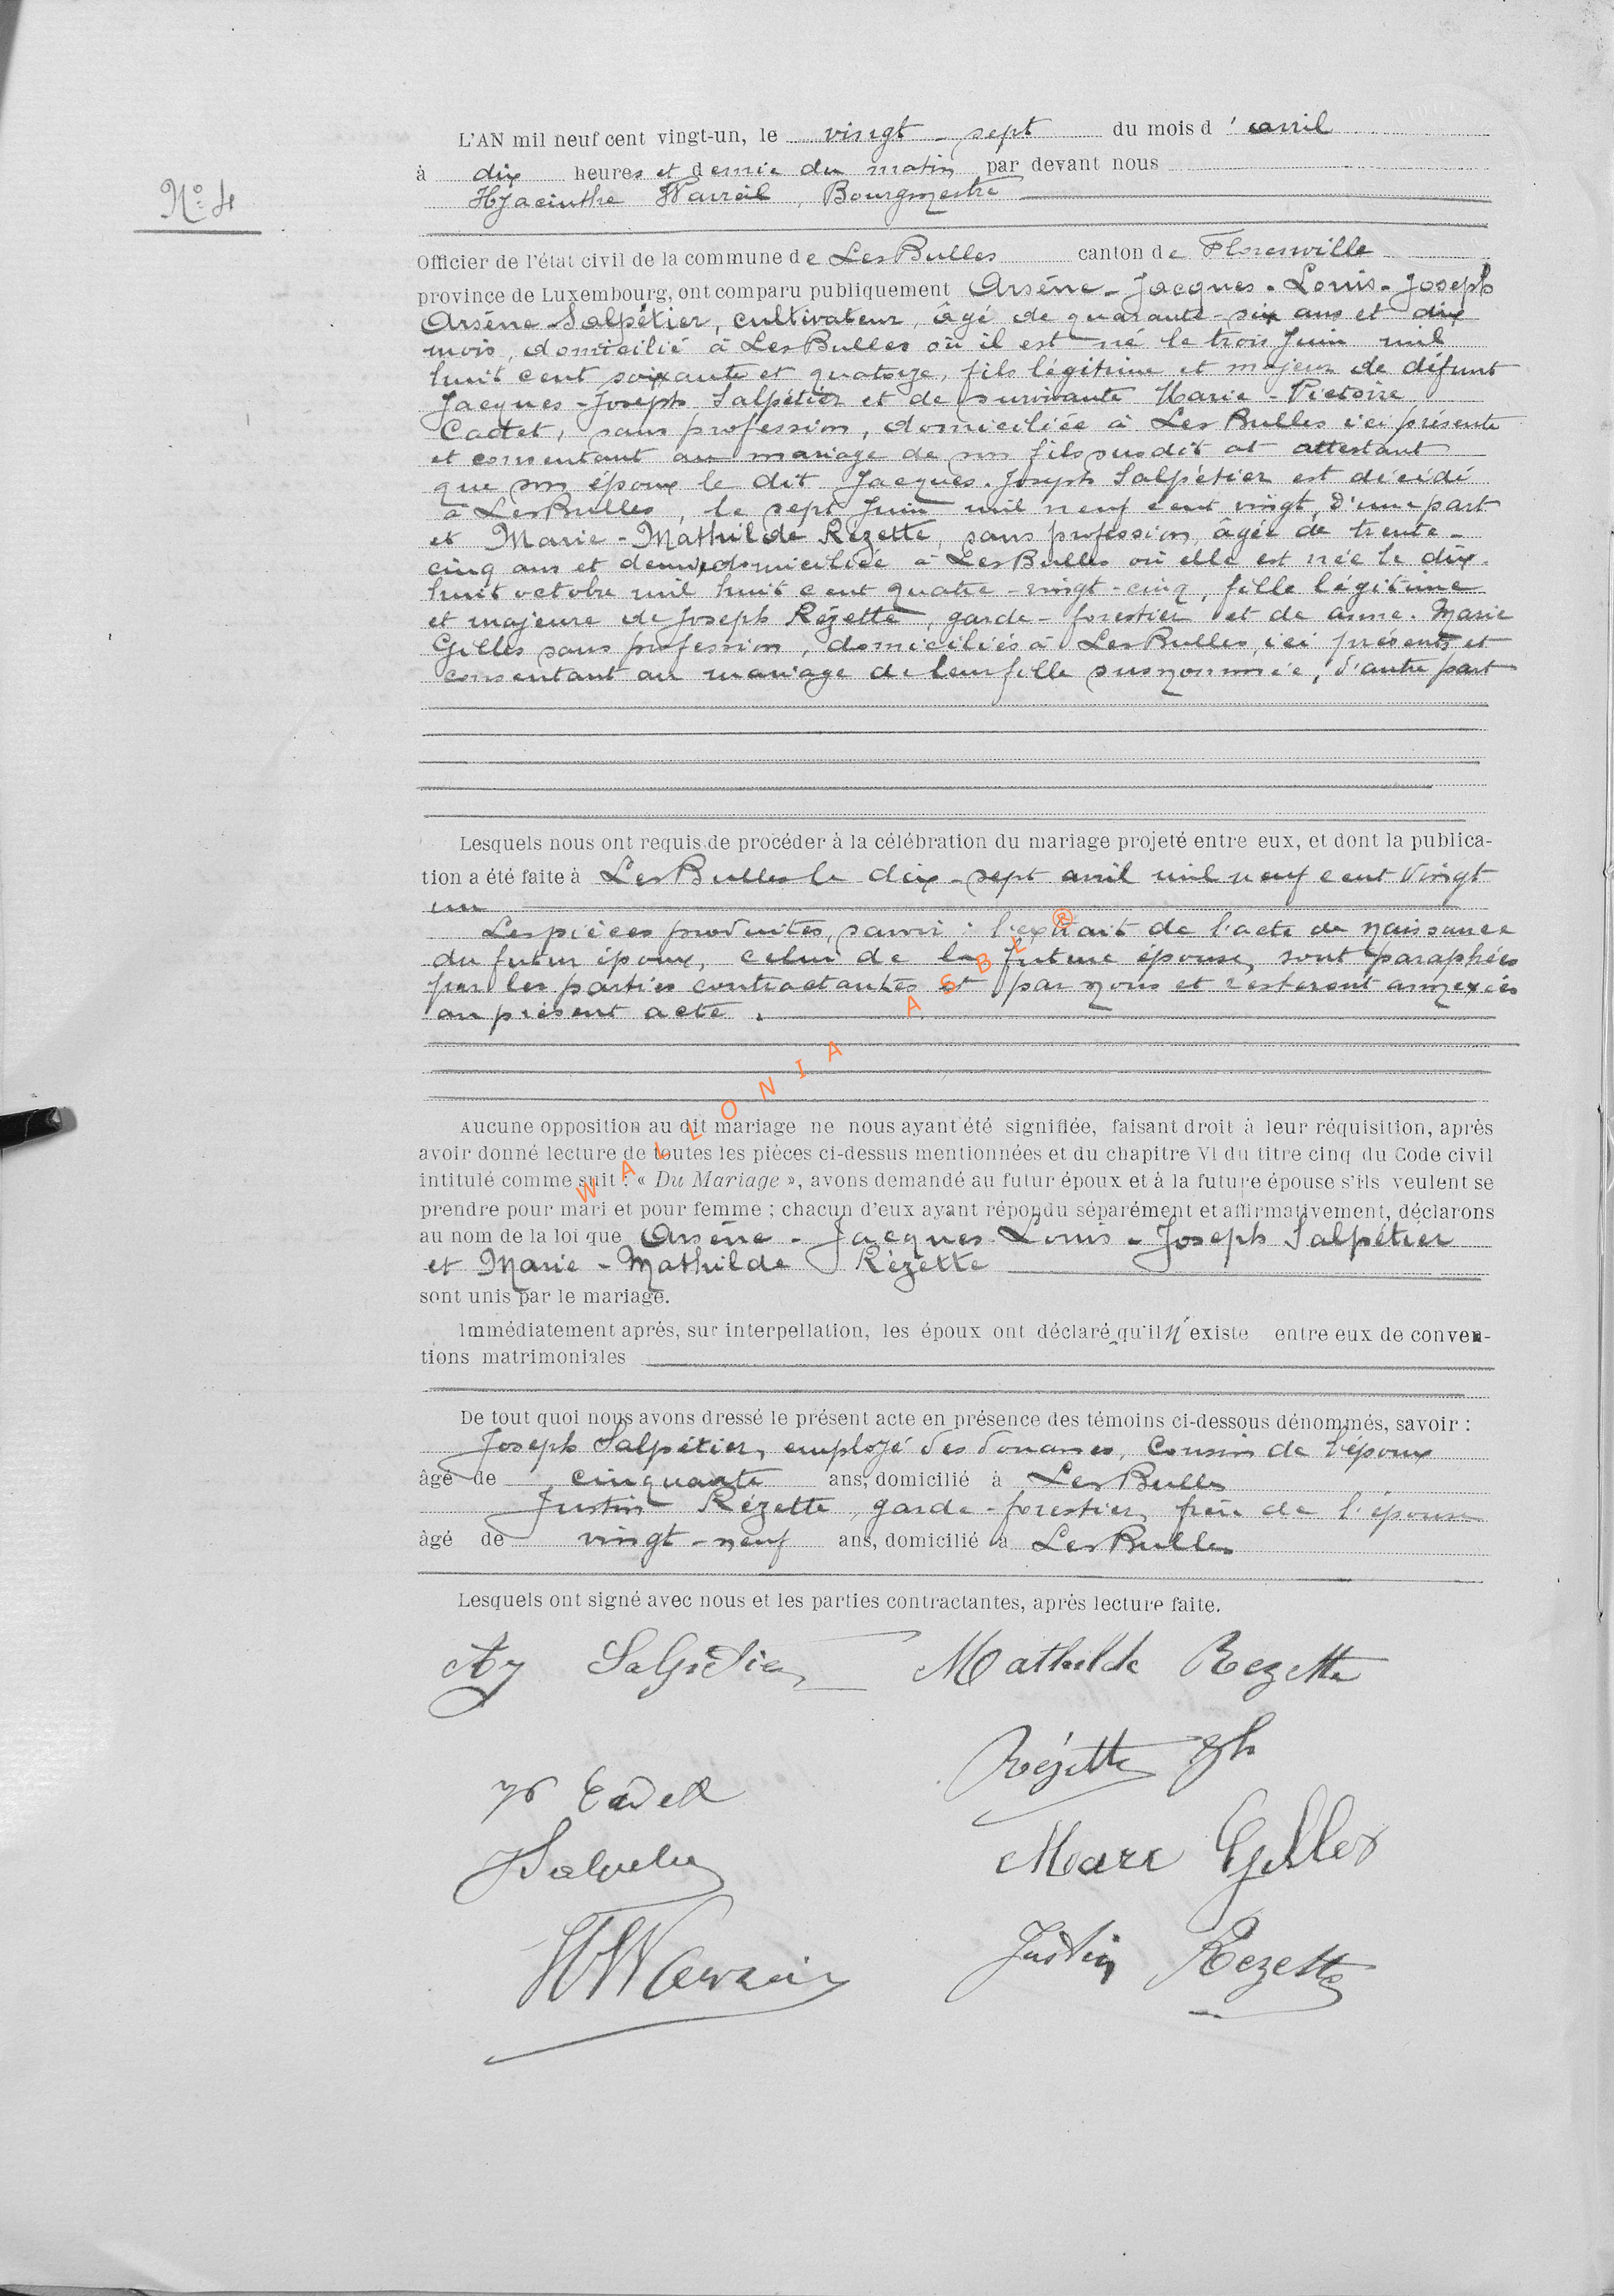 N° 4
L'AN mil neuf cent vingt-un, le vingt-sept du mois d'avril
à dix heures et demie du matin par devant nous
Hyacinthe Warrail, Bourgmestre
Officier de l'état civil de la commune de Les Bulles canton de Florenville
province de Luxembourg, ont comparu publiquement Arsène-Jacques-Louis-Joseph
Arsène Salpétier, cultivateur, âgé de quarante-six ans et dix
mois, domicilié à Les Bulles où il est né le trois Juin mil
huit cent soixante et quatorze, fils légitime et majeur de défunt
Jacques-Joseph Salpétier et de survivante Marie-Victoire
Cadet, sans profession, domiciliée à Les Bulles ici présente
et consentant au mariage de son fils susdit et attestant
que son époux le dit Jacques-Joseph Salpétier est décédé
à Les Bulles, le sept Juin mil neuf cent vingt, d'une part
et Marie-Mathilde Rézette, sans profession, âgée de trente-
cinq ans et demi, domiciliée à Les Bulles où elle est née le dix-
huit octobre mil huit cent quatre-vingt-cinq, fille légitime
et majeure de Joseph Rézette, garde-forestier et de Anne-Marie
Gilles sans profession, domiciliés à Les Bulles, ici présents et
consentant au mariage de leur fille susnommée, d'autre part
Lesquels nous ont requis de procéder à la célébration du mariage projeté entre eux, et dont la publica-
tion a été faite à Les Bulles le dix-sept avril mil neuf cent vingt
un
Les pièces produites, savoir : l'extrait de l'acte de naissance
du futur époux, celui de la future épouse, sont paraphées
par les parties contractantes et par nous et resteront annexées
au présent acte.
WALLONIA ASBL ®
Aucune opposition au dit mariage ne nous ayant été signifiée, faisant droit à leur réquisition, après
avoir donné lecture de toutes les pièces ci-dessus mentionnées et du chapitre VI du titre cinq du Code civil
intitulé comme suit : « Du Mariage », avons demandé au futur époux et à la future épouse s'ils veulent se
prendre pour mari et pour femme ; chacun d'eux ayant répondu séparément et affirmativement, déclarons
au nom de la loi que Arsène-Jacques-Louis-Joseph Salpétier
et Marie-Mathilde Rézette
sont unis par le mariage.
Immédiatement après, sur interpellation, les époux ont déclaré qu'il n'existe entre eux de conven-
tions matrimoniales
De tout quoi nous avons dressé le présent acte en présence des témoins ci-dessous dénommés, savoir :
Joseph Salpétier, employé des douanes, cousin de l'époux
âgé de cinquante ans, domicilié à Les Bulles
Justin Rézette, garde-forestier, frère de l'épouse
âgé de vingt-neuf ans, domicilié à Les Bulles
Lesquels ont signé avec nous et les parties contractantes, après lecture faite.
Salpétier Mathilde Rezette
Rézette
Marie Gilles
Justin Rezette